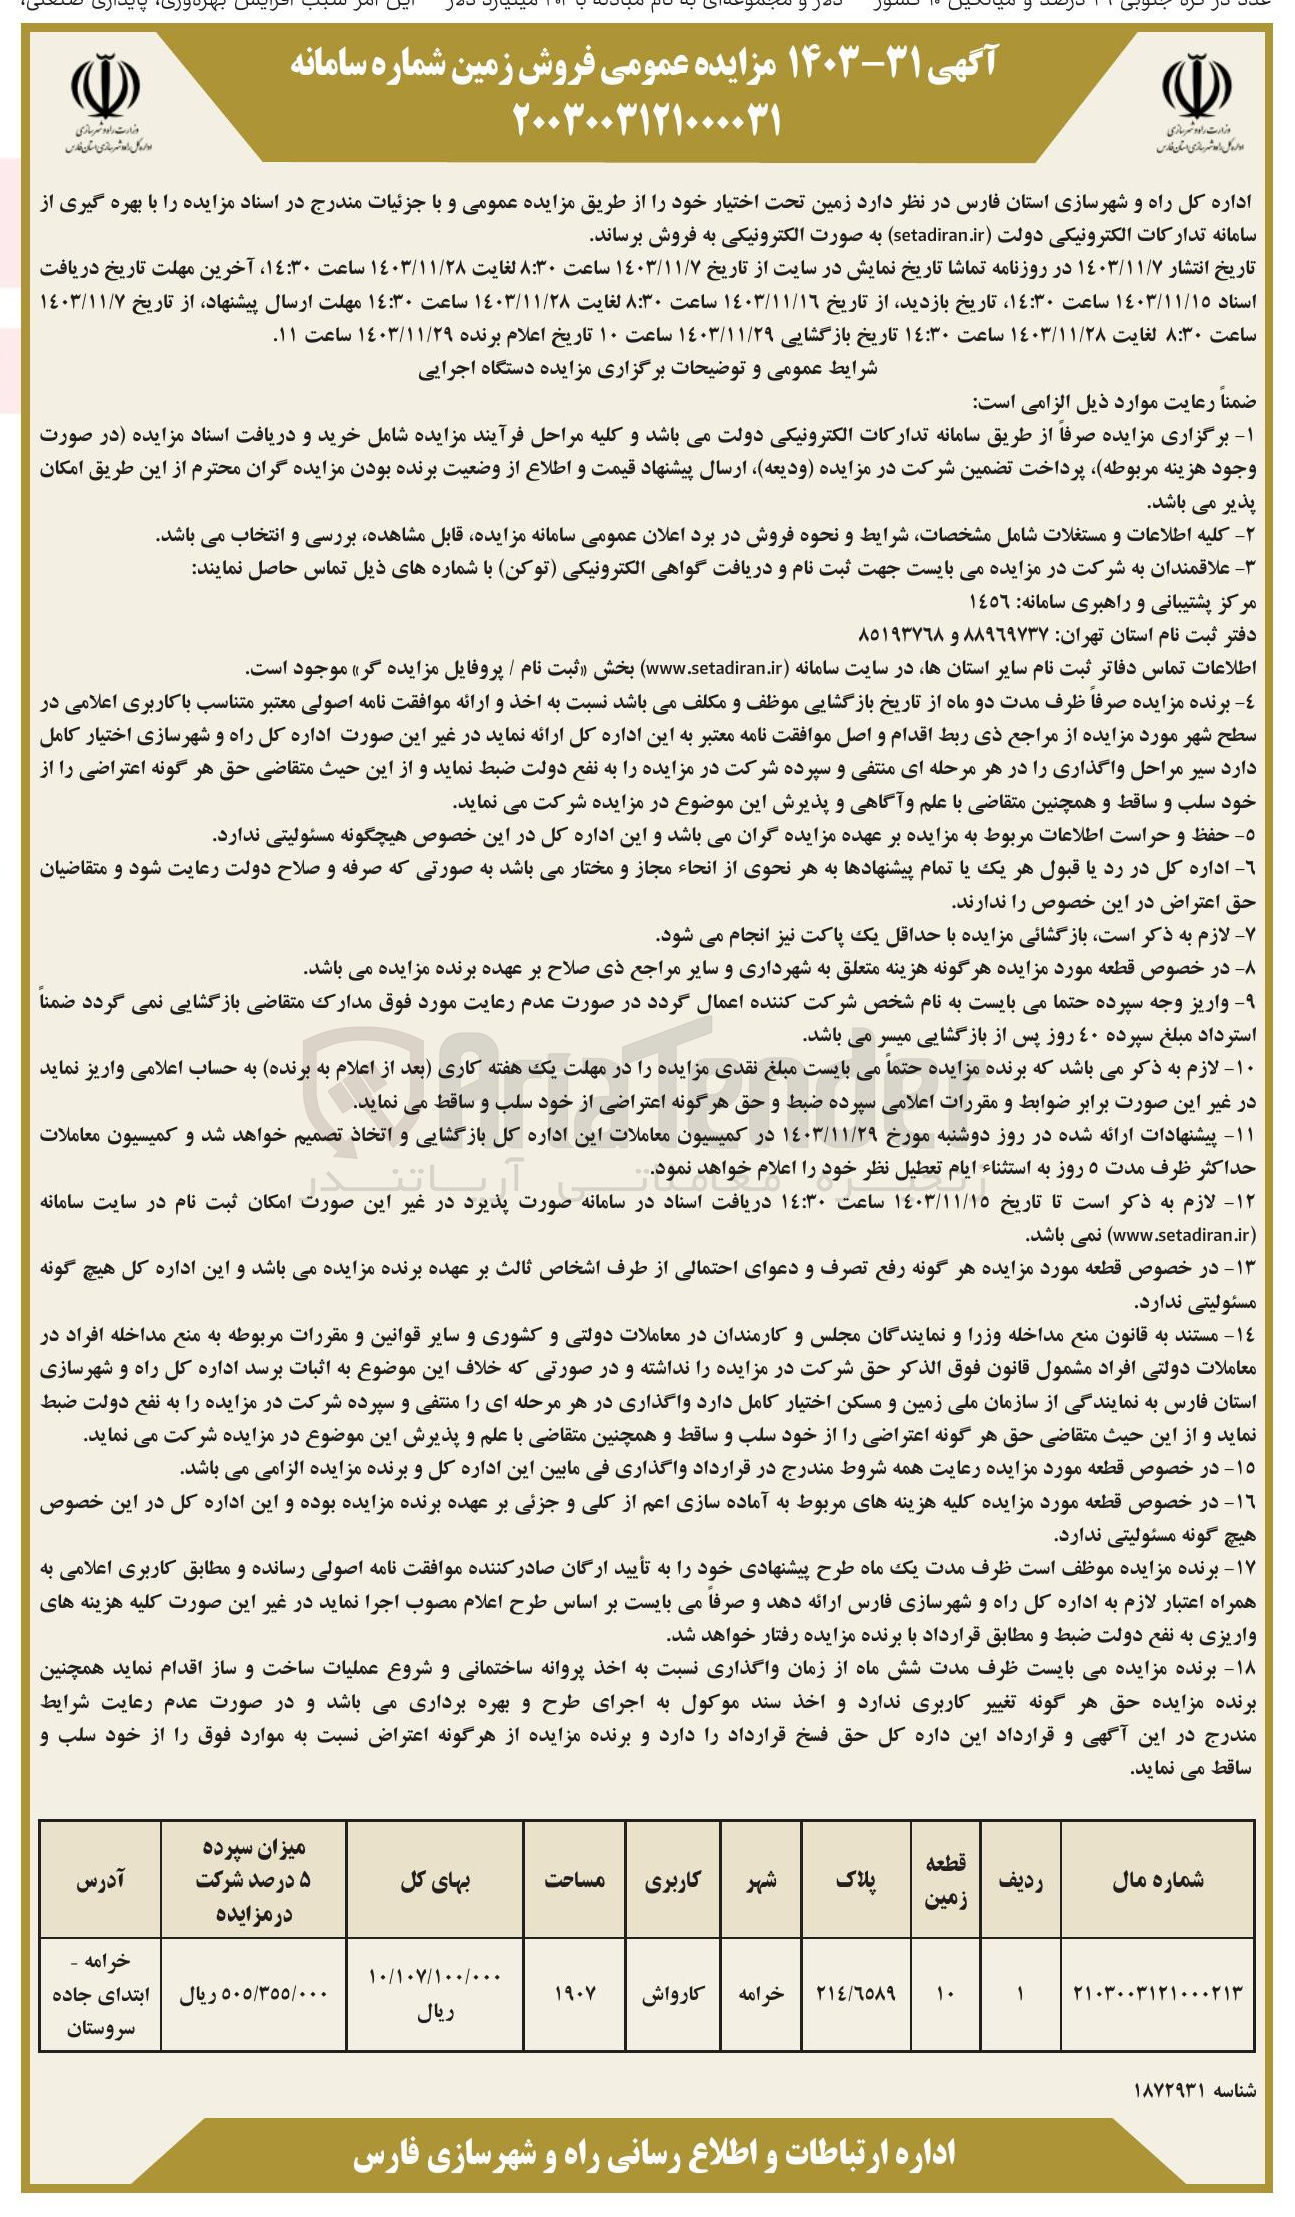 عدد در کره جنوبی ۲۹ درصد و میانگین ۱۰ کشور دلار و مجموعه‌ای به نام مبادله با ۲۰۲ میلیارد دلار این امر سبب افزایش بهره‌وری، پایداری صنعتی،
آگهی ۳۱-۱۴۰۳ مزایده عمومی فروش زمین شماره سامانه
۲۰۰۳۰۰۳۱۲۱۰۰۰۰۳۱
وزارت راه و شهرسازی
اداره کل راه و شهرسازی استان فارس
وزارت راه و شهرسازی
اداره کل راه و شهرسازی استان فارس
اداره کل راه و شهرسازی استان فارس در نظر دارد زمین تحت اختیار خود را از طریق مزایده عمومی و با جزئیات مندرج در اسناد مزایده را با بهره گیری از
سامانه تدارکات الکترونیکی دولت (setadiran.ir) به صورت الکترونیکی به فروش برساند.
تاریخ انتشار ۱۴۰۳/۱۱/۷ در روزنامه تماشا تاریخ نمایش در سایت از تاریخ ۱۴۰۳/۱۱/۷ ساعت ۸:۳۰ لغایت ۱۴۰۳/۱۱/۲۸ ساعت ۱۴:۳۰، آخرین مهلت تاریخ دریافت
اسناد ۱۴۰۳/۱۱/۱۵ ساعت ۱۴:۳۰، تاریخ بازدید، از تاریخ ۱۴۰۳/۱۱/۱۶ ساعت ۸:۳۰ لغایت ۱۴۰۳/۱۱/۲۸ ساعت ۱۴:۳۰ مهلت ارسال پیشنهاد، از تاریخ ۱۴۰۳/۱۱/۷
ساعت ۸:۳۰ لغایت ۱۴۰۳/۱۱/۲۸ ساعت ۱۴:۳۰ تاریخ بازگشایی ۱۴۰۳/۱۱/۲۹ ساعت ۱۰ تاریخ اعلام برنده ۱۴۰۳/۱۱/۲۹ ساعت ۱۱.
شرایط عمومی و توضیحات برگزاری مزایده دستگاه اجرایی
ضمناً رعایت موارد ذیل الزامی است:
۱- برگزاری مزایده صرفاً از طریق سامانه تدارکات الکترونیکی دولت می باشد و کلیه مراحل فرآیند مزایده شامل خرید و دریافت اسناد مزایده (در صورت
وجود هزینه مربوطه)، پرداخت تضمین شرکت در مزایده (ودیعه)، ارسال پیشنهاد قیمت و اطلاع از وضعیت برنده بودن مزایده گران محترم از این طریق امکان
پذیر می باشد.
۲- کلیه اطلاعات و مستغلات شامل مشخصات، شرایط و نحوه فروش در برد اعلان عمومی سامانه مزایده، قابل مشاهده، بررسی و انتخاب می باشد.
۳- علاقمندان به شرکت در مزایده می بایست جهت ثبت نام و دریافت گواهی الکترونیکی (توکن) با شماره های ذیل تماس حاصل نمایند:
مرکز پشتیبانی و راهبری سامانه: ۱۴۵۶
دفتر ثبت نام استان تهران: ۸۸۹۶۹۷۳۷ و ۸۵۱۹۳۷۶۸
اطلاعات تماس دفاتر ثبت نام سایر استان ها، در سایت سامانه (www.setadiran.ir) بخش «ثبت نام / پروفایل مزایده گر» موجود است.
۴- برنده مزایده صرفاً ظرف مدت دو ماه از تاریخ بازگشایی موظف و مکلف می باشد نسبت به اخذ و ارائه موافقت نامه اصولی معتبر متناسب باکاربری اعلامی در
سطح شهر مورد مزایده از مراجع ذی ربط اقدام و اصل موافقت نامه معتبر به این اداره کل ارائه نماید در غیر این صورت اداره کل راه و شهرسازی اختیار کامل
دارد سیر مراحل واگذاری را در هر مرحله ای منتفی و سپرده شرکت در مزایده را به نفع دولت ضبط نماید و از این حیث متقاضی حق هر گونه اعتراضی را از
خود سلب و ساقط و همچنین متقاضی با علم وآگاهی و پذیرش این موضوع در مزایده شرکت می نماید.
۵- حفظ و حراست اطلاعات مربوط به مزایده بر عهده مزایده گران می باشد و این اداره کل در این خصوص هیچگونه مسئولیتی ندارد.
۶- اداره کل در رد یا قبول هر یک یا تمام پیشنهادها به هر نحوی از انحاء مجاز و مختار می باشد به صورتی که صرفه و صلاح دولت رعایت شود و متقاضیان
حق اعتراض در این خصوص را ندارند.
۷- لازم به ذکر است، بازگشائی مزایده با حداقل یک پاکت نیز انجام می شود.
۸- در خصوص قطعه مورد مزایده هرگونه هزینه متعلق به شهرداری و سایر مراجع ذی صلاح بر عهده برنده مزایده می باشد.
۹- واریز وجه سپرده حتما می بایست به نام شخص شرکت کننده اعمال گردد در صورت عدم رعایت مورد فوق مدارک متقاضی بازگشایی نمی گردد ضمناً
استرداد مبلغ سپرده ۴۰ روز پس از بازگشایی میسر می باشد.
۱۰- لازم به ذکر می باشد که برنده مزایده حتماً می بایست مبلغ نقدی مزایده را در مهلت یک هفته کاری (بعد از اعلام به برنده) به حساب اعلامی واریز نماید
در غیر این صورت برابر ضوابط و مقررات اعلامی سپرده ضبط و حق هرگونه اعتراضی از خود سلب و ساقط می نماید.
۱۱- پیشنهادات ارائه شده در روز دوشنبه مورخ ۱۴۰۳/۱۱/۲۹ در کمیسیون معاملات این اداره کل بازگشایی و اتخاذ تصمیم خواهد شد و کمیسیون معاملات
حداکثر ظرف مدت ۵ روز به استثناء ایام تعطیل نظر خود را اعلام خواهد نمود.
۱۲- لازم به ذکر است تا تاریخ ۱۴۰۳/۱۱/۱۵ ساعت ۱۴:۳۰ دریافت اسناد در سامانه صورت پذیرد در غیر این صورت امکان ثبت نام در سایت سامانه
(www.setadiran.ir) نمی باشد.
۱۳- در خصوص قطعه مورد مزایده هر گونه رفع تصرف و دعوای احتمالی از طرف اشخاص ثالث بر عهده برنده مزایده می باشد و این اداره کل هیچ گونه
مسئولیتی ندارد.
۱۴- مستند به قانون منع مداخله وزرا و نمایندگان مجلس و کارمندان در معاملات دولتی و کشوری و سایر قوانین و مقررات مربوطه به منع مداخله افراد در
معاملات دولتی افراد مشمول قانون فوق الذکر حق شرکت در مزایده را نداشته و در صورتی که خلاف این موضوع به اثبات برسد اداره کل راه و شهرسازی
استان فارس به نمایندگی از سازمان ملی زمین و مسکن اختیار کامل دارد واگذاری در هر مرحله ای را منتفی و سپرده شرکت در مزایده را به نفع دولت ضبط
نماید و از این حیث متقاضی حق هر گونه اعتراضی را از خود سلب و ساقط و همچنین متقاضی با علم و پذیرش این موضوع در مزایده شرکت می نماید.
۱۵- در خصوص قطعه مورد مزایده رعایت همه شروط مندرج در قرارداد واگذاری فی مابین این اداره کل و برنده مزایده الزامی می باشد.
۱۶- در خصوص قطعه مورد مزایده کلیه هزینه های مربوط به آماده سازی اعم از کلی و جزئی بر عهده برنده مزایده بوده و این اداره کل در این خصوص
هیچ گونه مسئولیتی ندارد.
۱۷- برنده مزایده موظف است ظرف مدت یک ماه طرح پیشنهادی خود را به تأیید ارگان صادرکننده موافقت نامه اصولی رسانده و مطابق کاربری اعلامی به
همراه اعتبار لازم به اداره کل راه و شهرسازی فارس ارائه دهد و صرفاً می بایست بر اساس طرح اعلام مصوب اجرا نماید در غیر این صورت کلیه هزینه های
واریزی به نفع دولت ضبط و مطابق قرارداد با برنده مزایده رفتار خواهد شد.
۱۸- برنده مزایده می بایست ظرف مدت شش ماه از زمان واگذاری نسبت به اخذ پروانه ساختمانی و شروع عملیات ساخت و ساز اقدام نماید همچنین
برنده مزایده حق هر گونه تغییر کاربری ندارد و اخذ سند موکول به اجرای طرح و بهره برداری می باشد و در صورت عدم رعایت شرایط
مندرج در این آگهی و قرارداد این داره کل حق فسخ قرارداد را دارد و برنده مزایده از هرگونه اعتراض نسبت به موارد فوق را از خود سلب و
ساقط می نماید.
AriaTender
زنجیره معاملاتی آریاتندر
شماره مال ردیف قطعه زمین پلاک شهر کاربری مساحت بهای کل میزان سپرده ۵ درصد شرکت درمزایده آدرس
۲۱۰۳۰۰۳۱۲۱۰۰۰۲۱۳ ۱ ۱۰ ۲۱۴/۶۵۸۹ خرامه کارواش ۱۹۰۷ ۱۰/۱۰۷/۱۰۰/۰۰۰ ریال ۵۰۵/۳۵۵/۰۰۰ ریال خرامه - ابتدای جاده سروستان
شناسه ۱۸۷۲۹۳۱
اداره ارتباطات و اطلاع رسانی راه و شهرسازی فارس